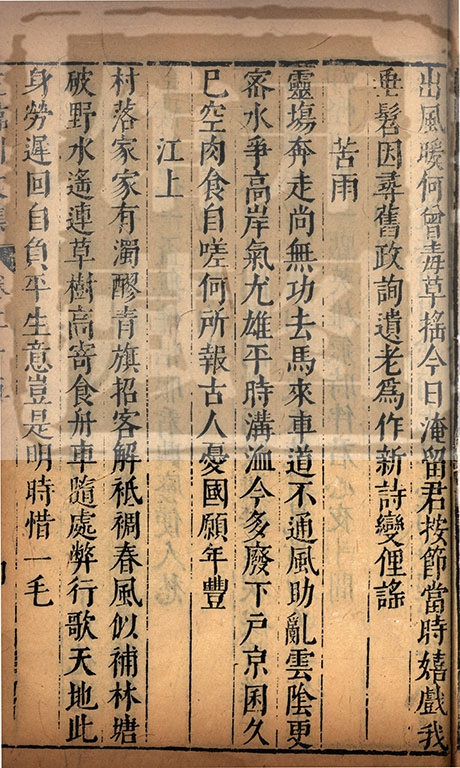 出風暖何曾毒草搖今日淹留君按節當時嬉戲我
垂髫因尋舊政詢遺老爲作新詩變俚謡
苦雨
靈塲奔走尚無功去馬來車道不通風助亂雲陰更
宻水爭高岸氣尤雄平時溝洫今多廢下戸京囷久
已空肉食自嗟何所報古人憂國願年豐
江上
村落家家有濁醪青旗招客解袛裯春風似補林塘
破野水遙連草樹高寄食舟車隨處弊行歌天地此
身勞遲回自負平生意豈是明時惜一毛